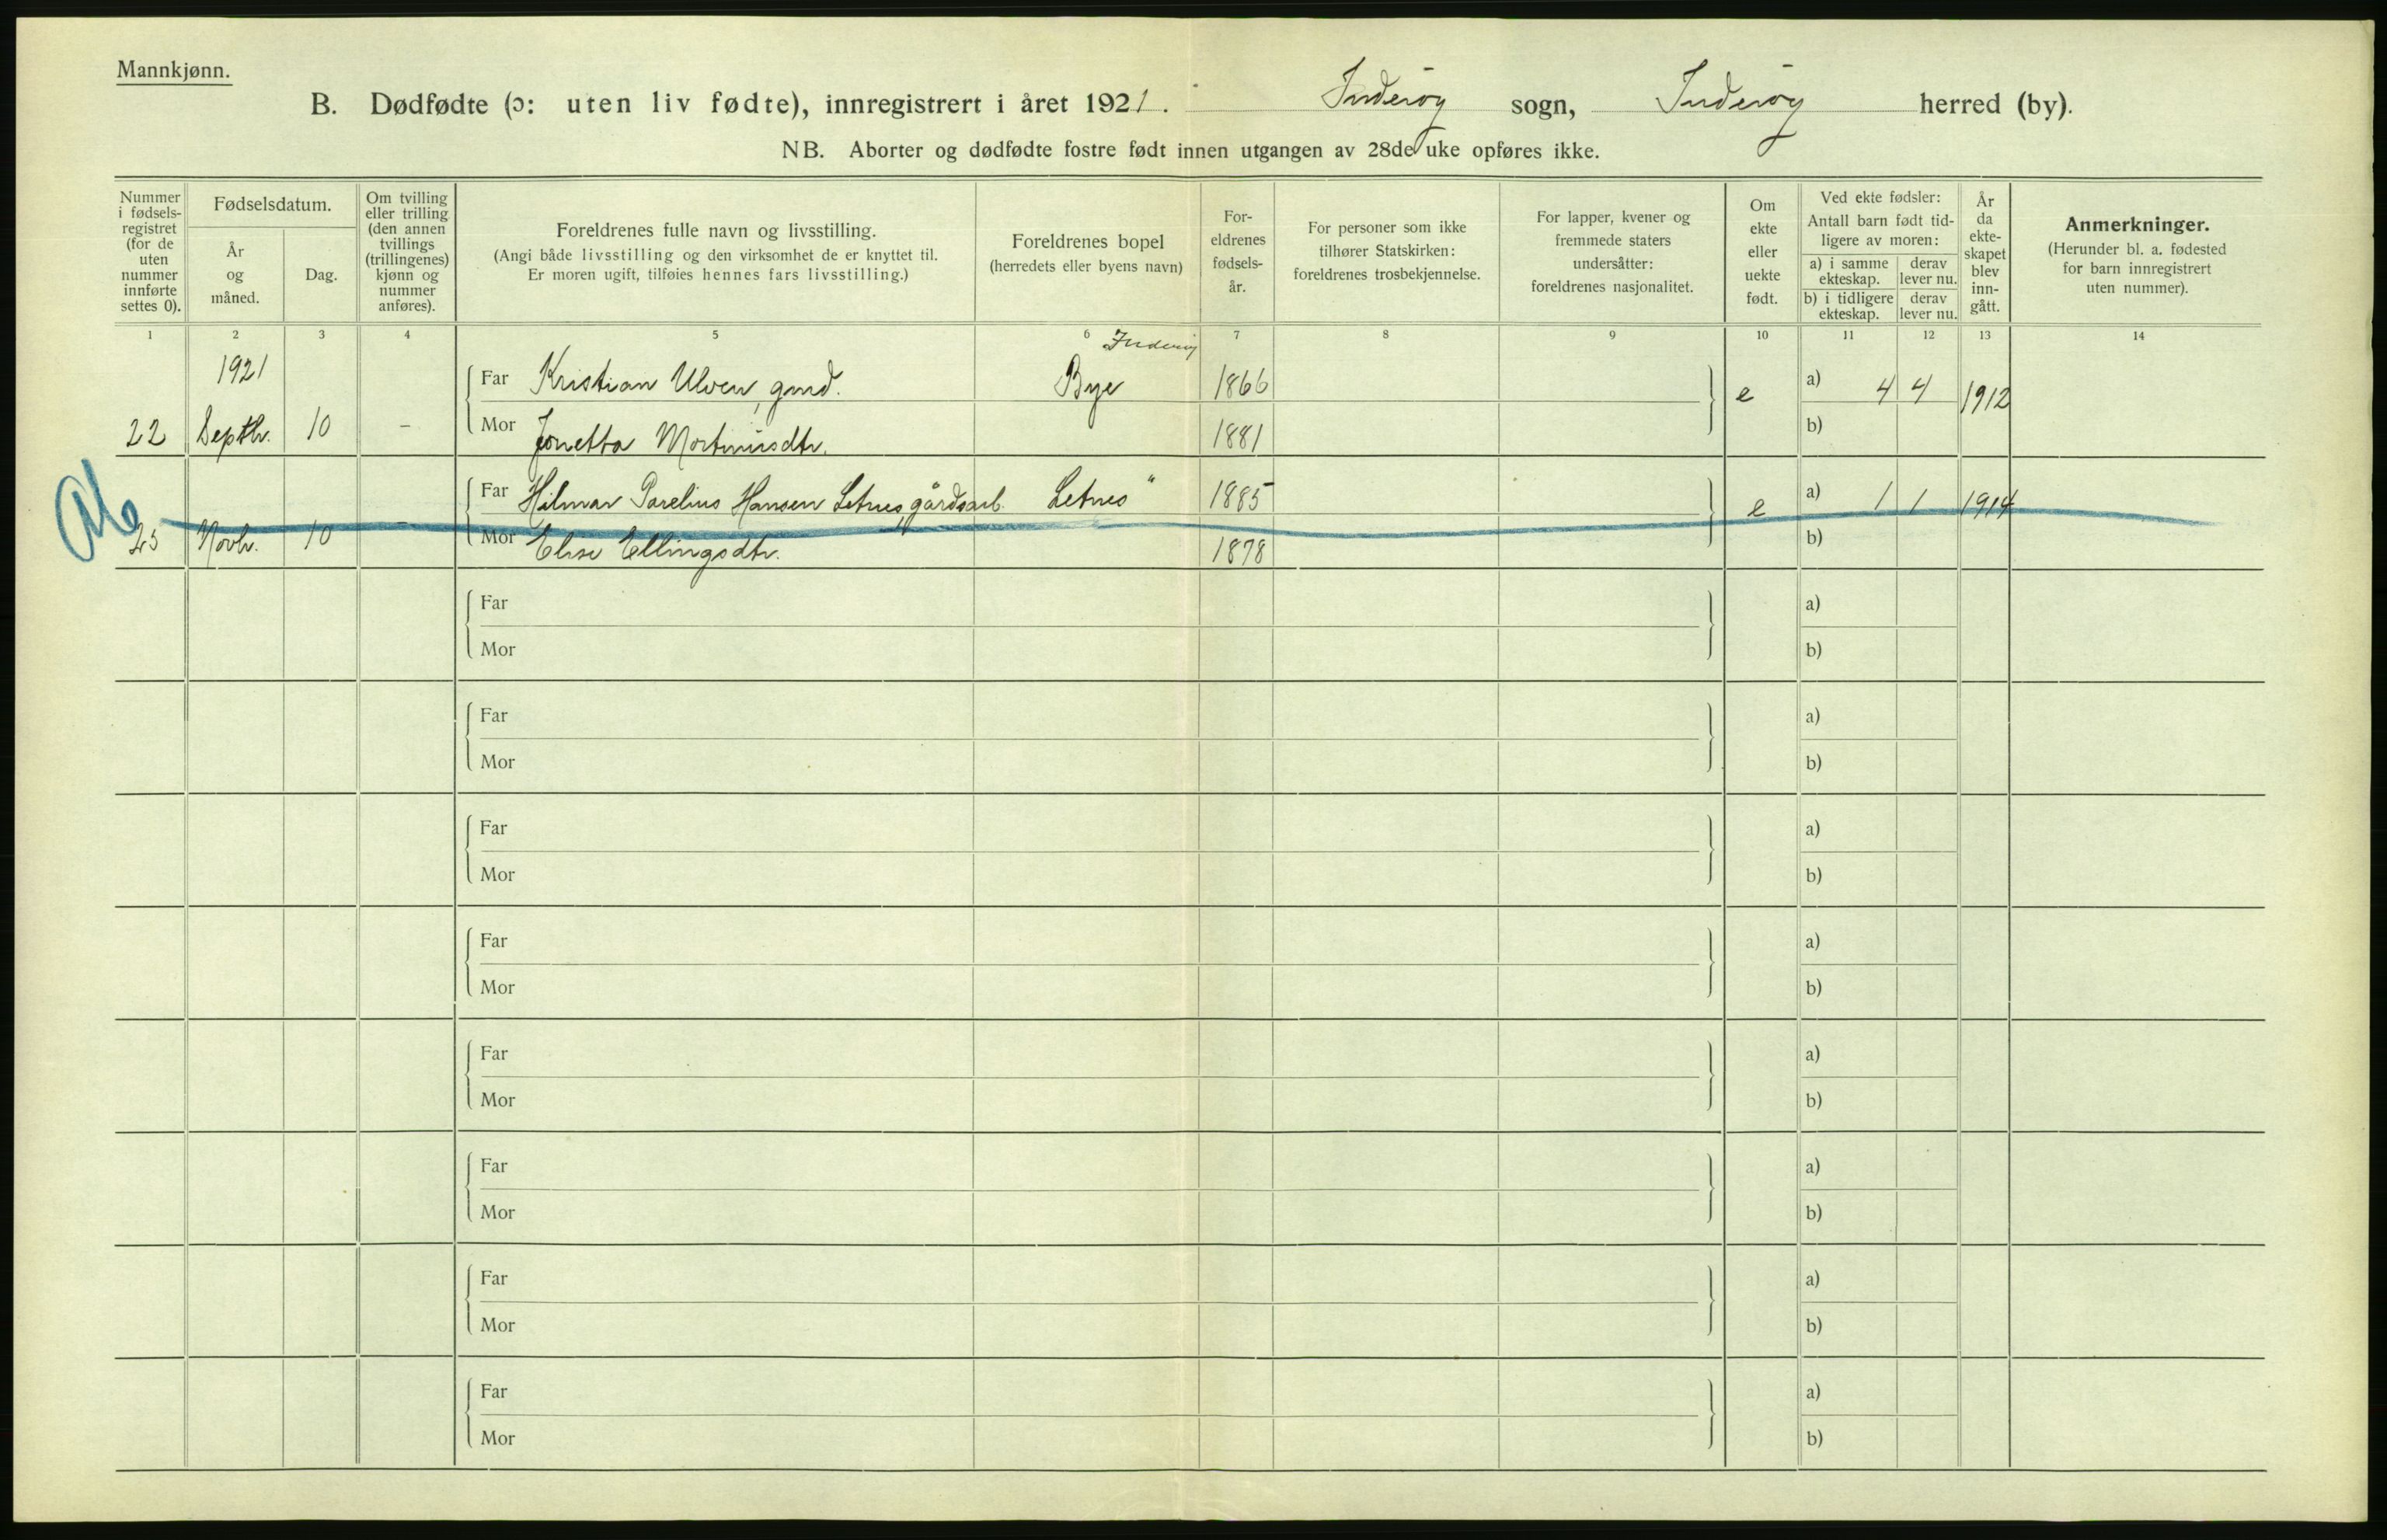 Mannkjønn.
B. Dødfødte (ɔ: uten liv fødte), innregistrert i året 1921. Inderøy sogn, Inderøy herred (by).
NB. Aborter og dødfødte fostre født innen utgangen av 28de uke opføres ikke.
Nummer i fødsels-registret (for de uten nummer innførte settes 0).
Fødselsdatum.
År og måned.
Dag.
Om tvilling eller trilling (den annen tvillings (trillingenes) kjønn og nummer anføres).
Foreldrenes fulle navn og livsstilling.
(Angi både livsstilling og den virksomhet de er knyttet til.
Er moren ugift, tilføies hennes fars livsstilling.)
Foreldrenes bopel
(herredets eller byens navn)
For-eldrenes fødsels-år.
For personer som ikke tilhører Statskirken: foreldrenes trosbekjennelse.
For lapper, kvener og fremmede staters undersåtter: foreldrenes nasjonalitet.
Om ekte eller uekte født.
Ved ekte fødsler:
Antall barn født tid-ligere av moren:
a) i samme ekteskap.
derav lever nu.
b) i tidligere ekteskap.
derav lever nu.
År da ekte-skapet blev inn-gått.
Anmerkninger.
(Herunder bl. a. fødested for barn innregistrert uten nummer).
1 2 3 4 5 6 7 8 9 10 11 12 13 14
Inderøy
1921
Far Kristian Ulven, gmd. Bye 1866 e a) 4 4 1912
22 Septbr. 10 – Mor Jonetta Mortinusdtr. 1881 b)
Far Hilmar Parelius Hansen Letnes, gårdsarb. Letnes " 1885 e a) 1 1 1914
25 Novbr. 10 – Mor Elise Ellingsdtr. 1878 b)
Far a)
Mor b)
Far a)
Mor b)
Far a)
Mor b)
Far a)
Mor b)
Far a)
Mor b)
Far a)
Mor b)
Far a)
Mor b)
Far a)
Mor b)